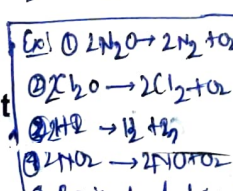 Ex) ① 2N₂O → 2N₂ + O₂
② 2Cl₂O → 2Cl₂ + O₂
③ 2HI → H₂ + I₂
④ 2NO₂ → 2NO + O₂